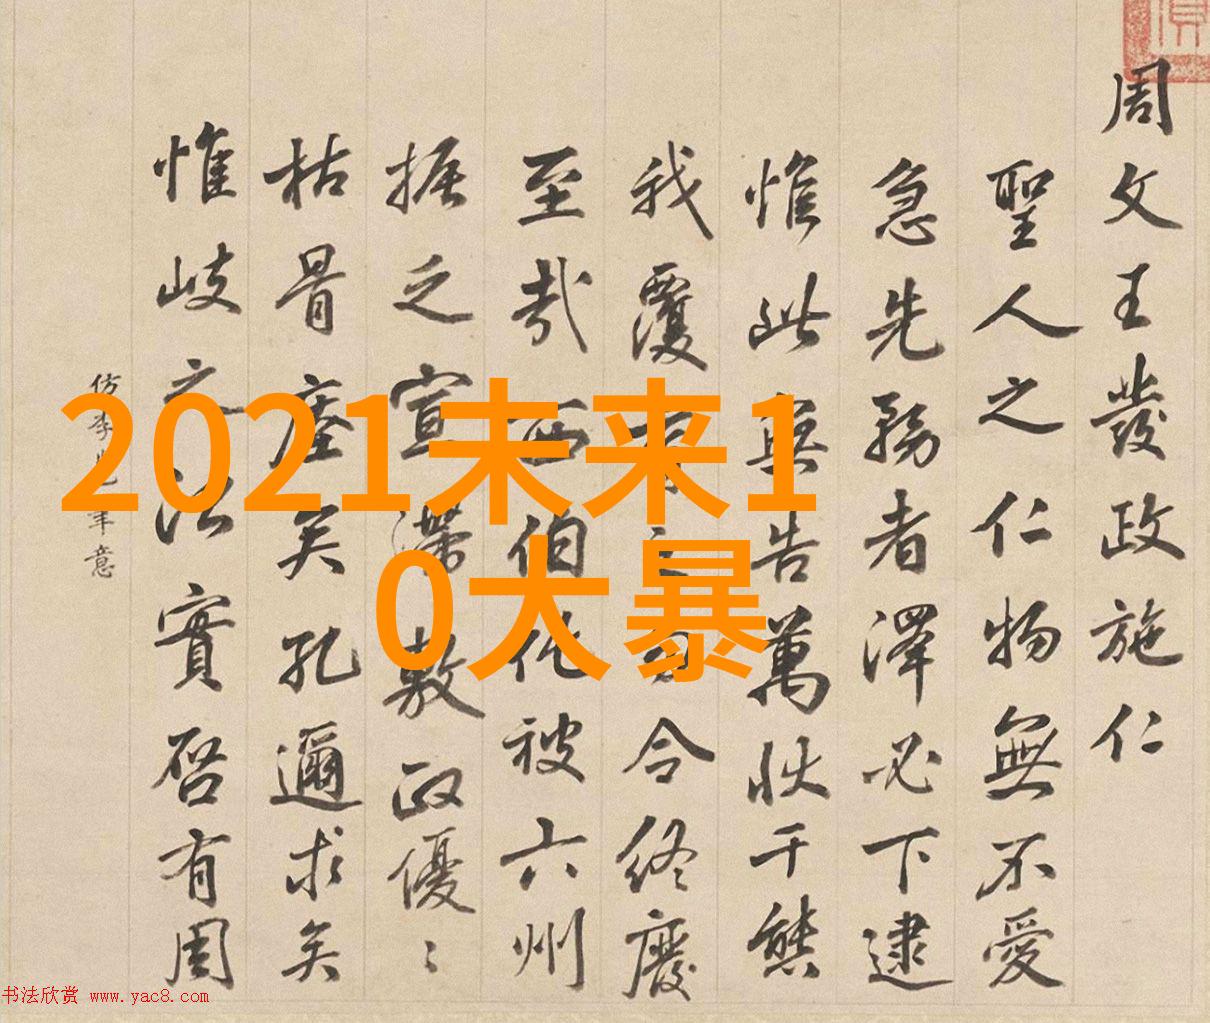 周文王發政施仁
聖人之仁物無不愛
急先務者澤必下逮
惟此無告萬狀千態
我覆之令終廢
至哉西伯化被六州
振之宣滯敷政優〻
枯骨瘞矣孔邇求矣
惟岐之治實啓有周
仿李筆意
2021未来1
0大暴
书法欣赏 www.yac8.com